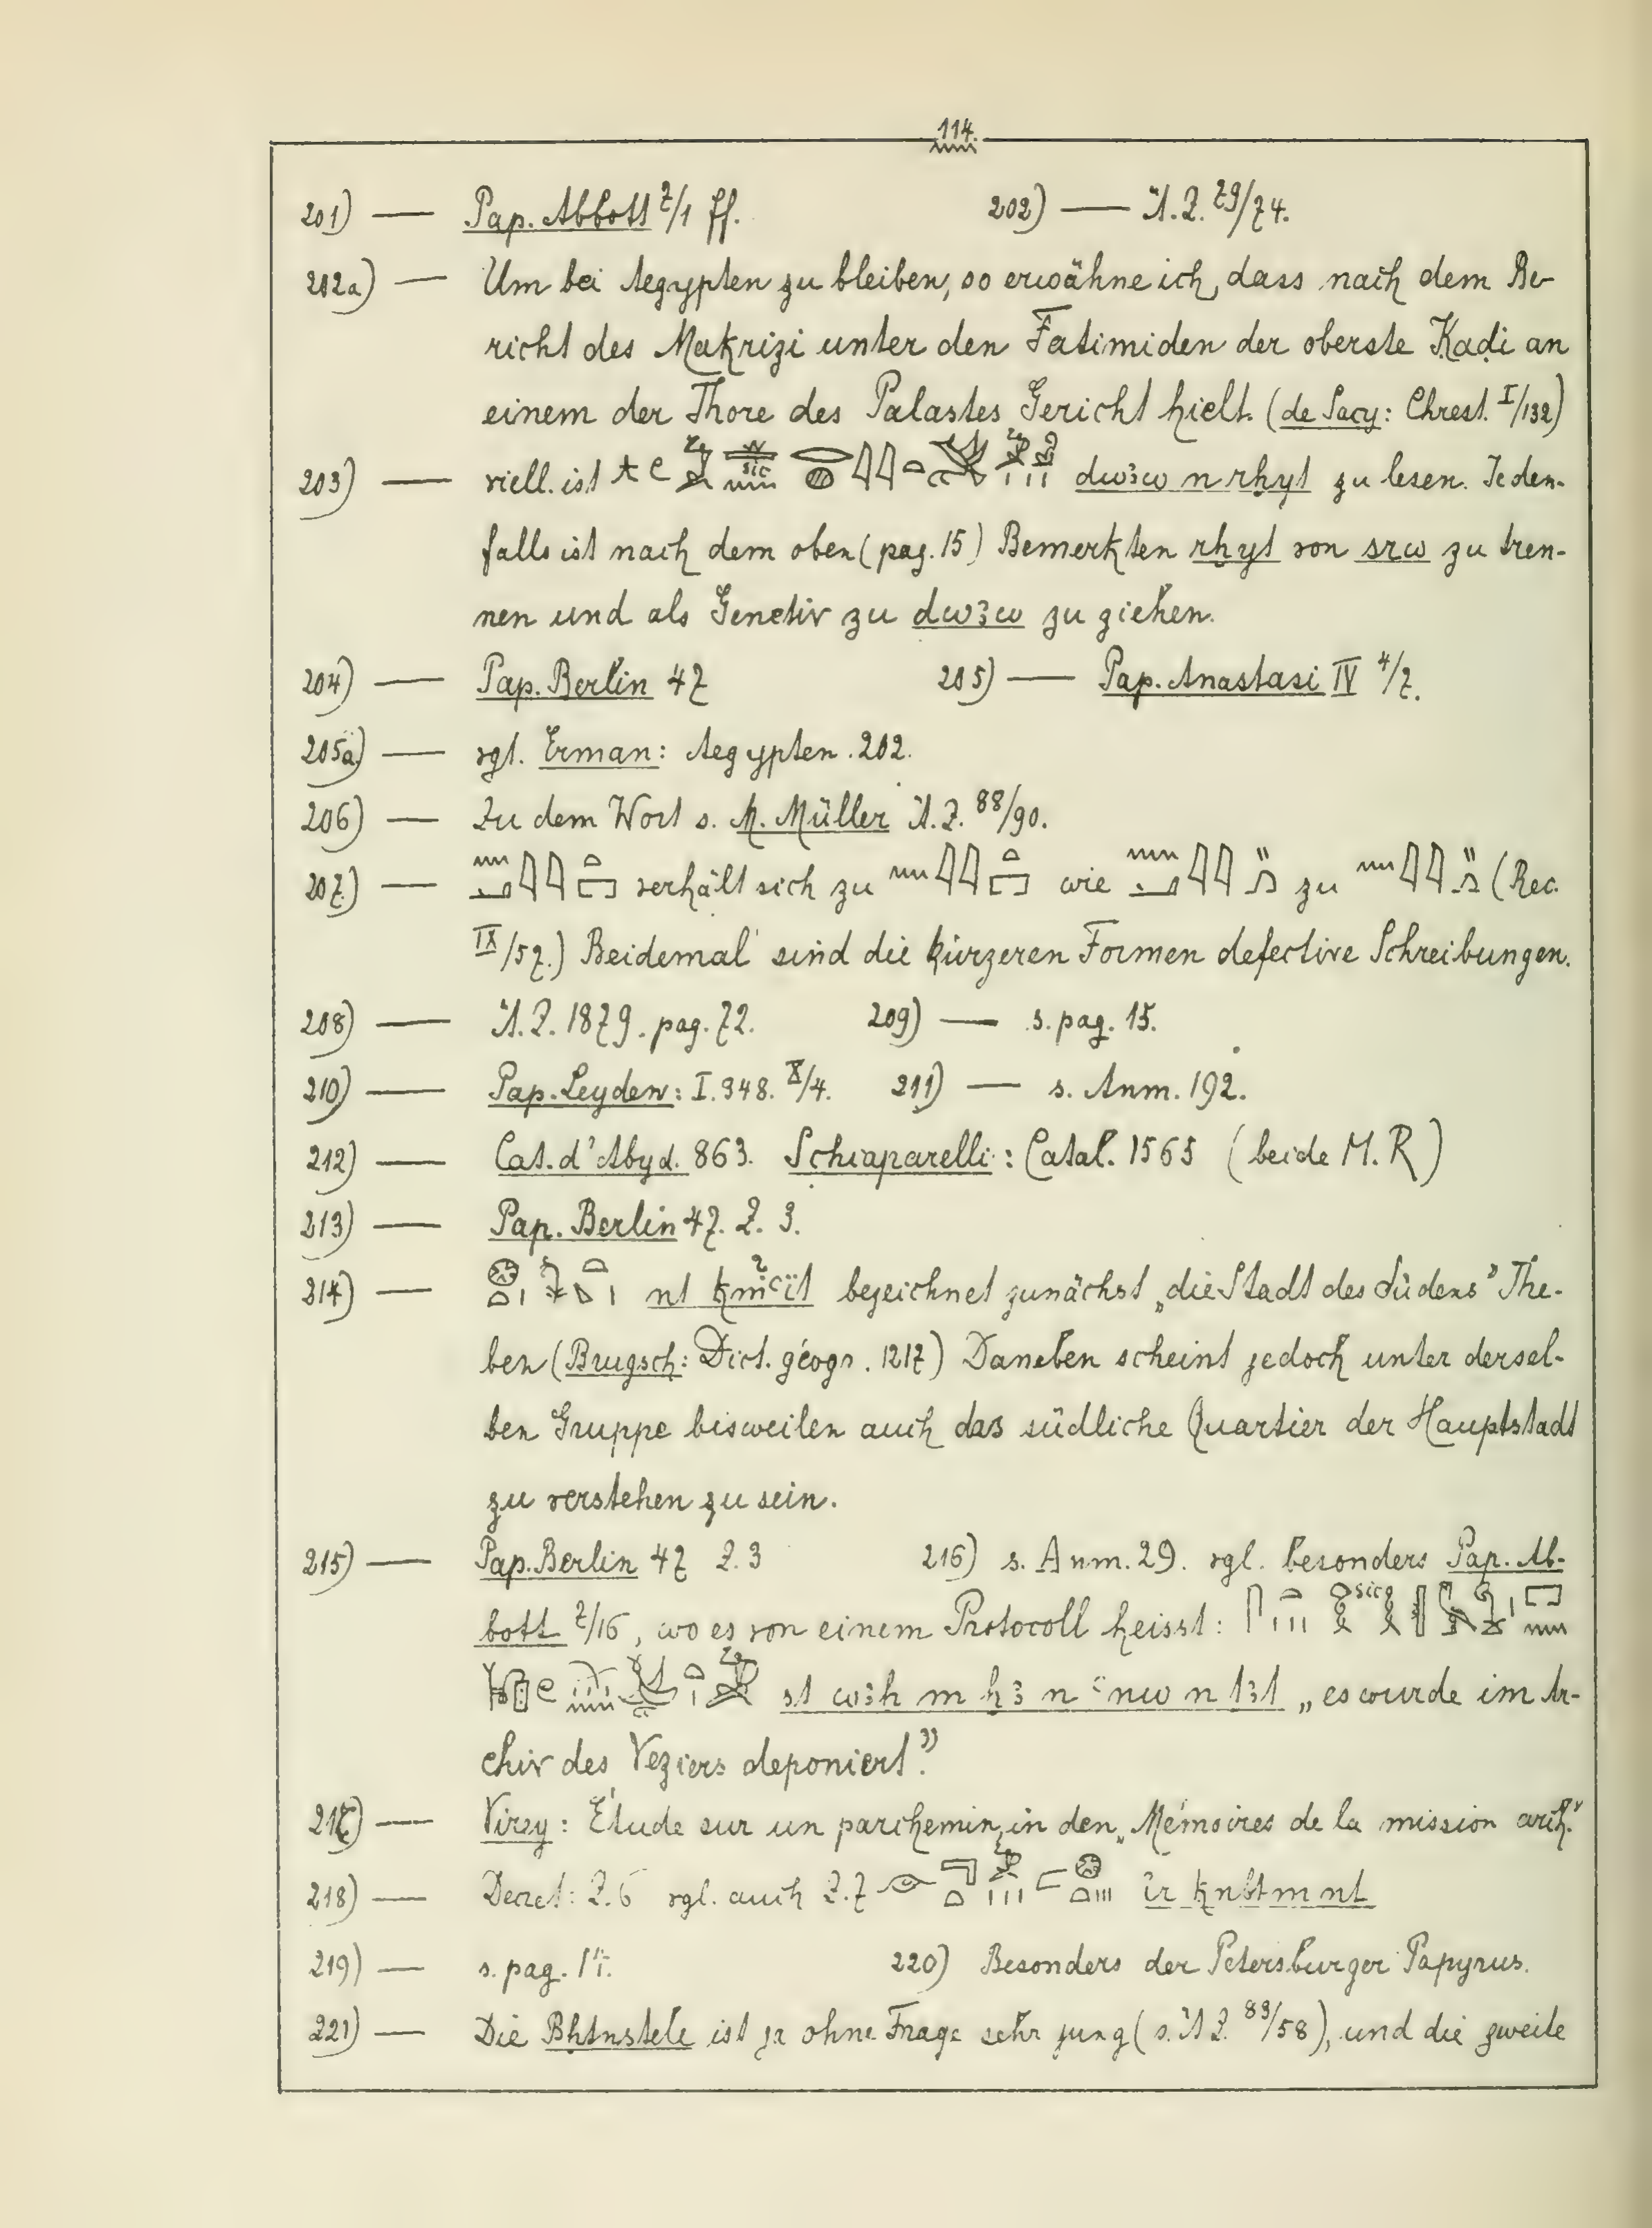 114.
201) — Pap. Abbott 7/1 ff. 202) — Ä.Z. 79/74.
202a) — Um bei Aegypten zu bleiben, so erwähne ich, dass nach dem Be-
richt des Makrizi unter den Fatimiden der oberste Kadi an
einem der Thore des Palastes Gericht hielt. (de Sacy: Chrest. I/132)
203) — viell. ist dwꜣw n rhyt zu lesen. Jeden-
falls ist nach dem oben (pag. 15) Bemerkten rhyt von srw zu tren-
nen und als Genetiv zu dwꜣw zu ziehen.
204) — Pap. Berlin 47 205) — Pap. Anastasi IV 4/7.
205a) — vgl. Erman: Aegypten. 202.
206) — Zu dem Wort s. M. Müller Ä.Z. 88/90.
207.) — verhält sich zu wie zu (Rec.
IX/57.) Beidemal sind die kürzeren Formen defective Schreibungen.
208) — Ä.Z. 1879. pag. 72. 209) — s. pag. 15.
210) — Pap. Leyden: I. 348. X/4. 211) — s. Anm. 192.
212) — Cat. d'Abyd. 863. Schiaparelli: Catal. 1565 (beide M. R)
213) — Pap. Berlin 47. Z. 3.
214) — nt bezeichnet zunächst „die Stadt des Südens" The-
ben (Brugsch: Dict. géogr. 1217) Daneben scheint jedoch unter dersel-
ben Gruppe bisweilen auch das südliche Quartier der Hauptstadt
zu verstehen zu sein.
215) — Pap. Berlin 47 Z. 3 216) s. Anm. 29. vgl. besonders Pap. Ab-
bott 7/16, wo es von einem Protocoll heisst:
st wꜣh m hꜣ n nw n tꜣt „es wurde im Ar-
chiv des Veziers deponiert."
217) — Virey: Étude sur un parchemin, in den „Mémoires de la mission arch."
218) — Decret: Z. 6 vgl. auch Z. 7 ir knbt m nt
219) — s. pag. 220) Besonders der Petersburger Papyrus.
221) — Die Bhtnstele ist ja ohne Frage sehr jung (s. Ä Z. 83/58), und die zweite